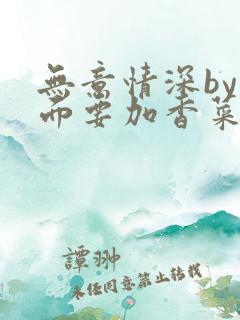 無意情深by
而要加香菜
譚翀
未经同意禁止转载